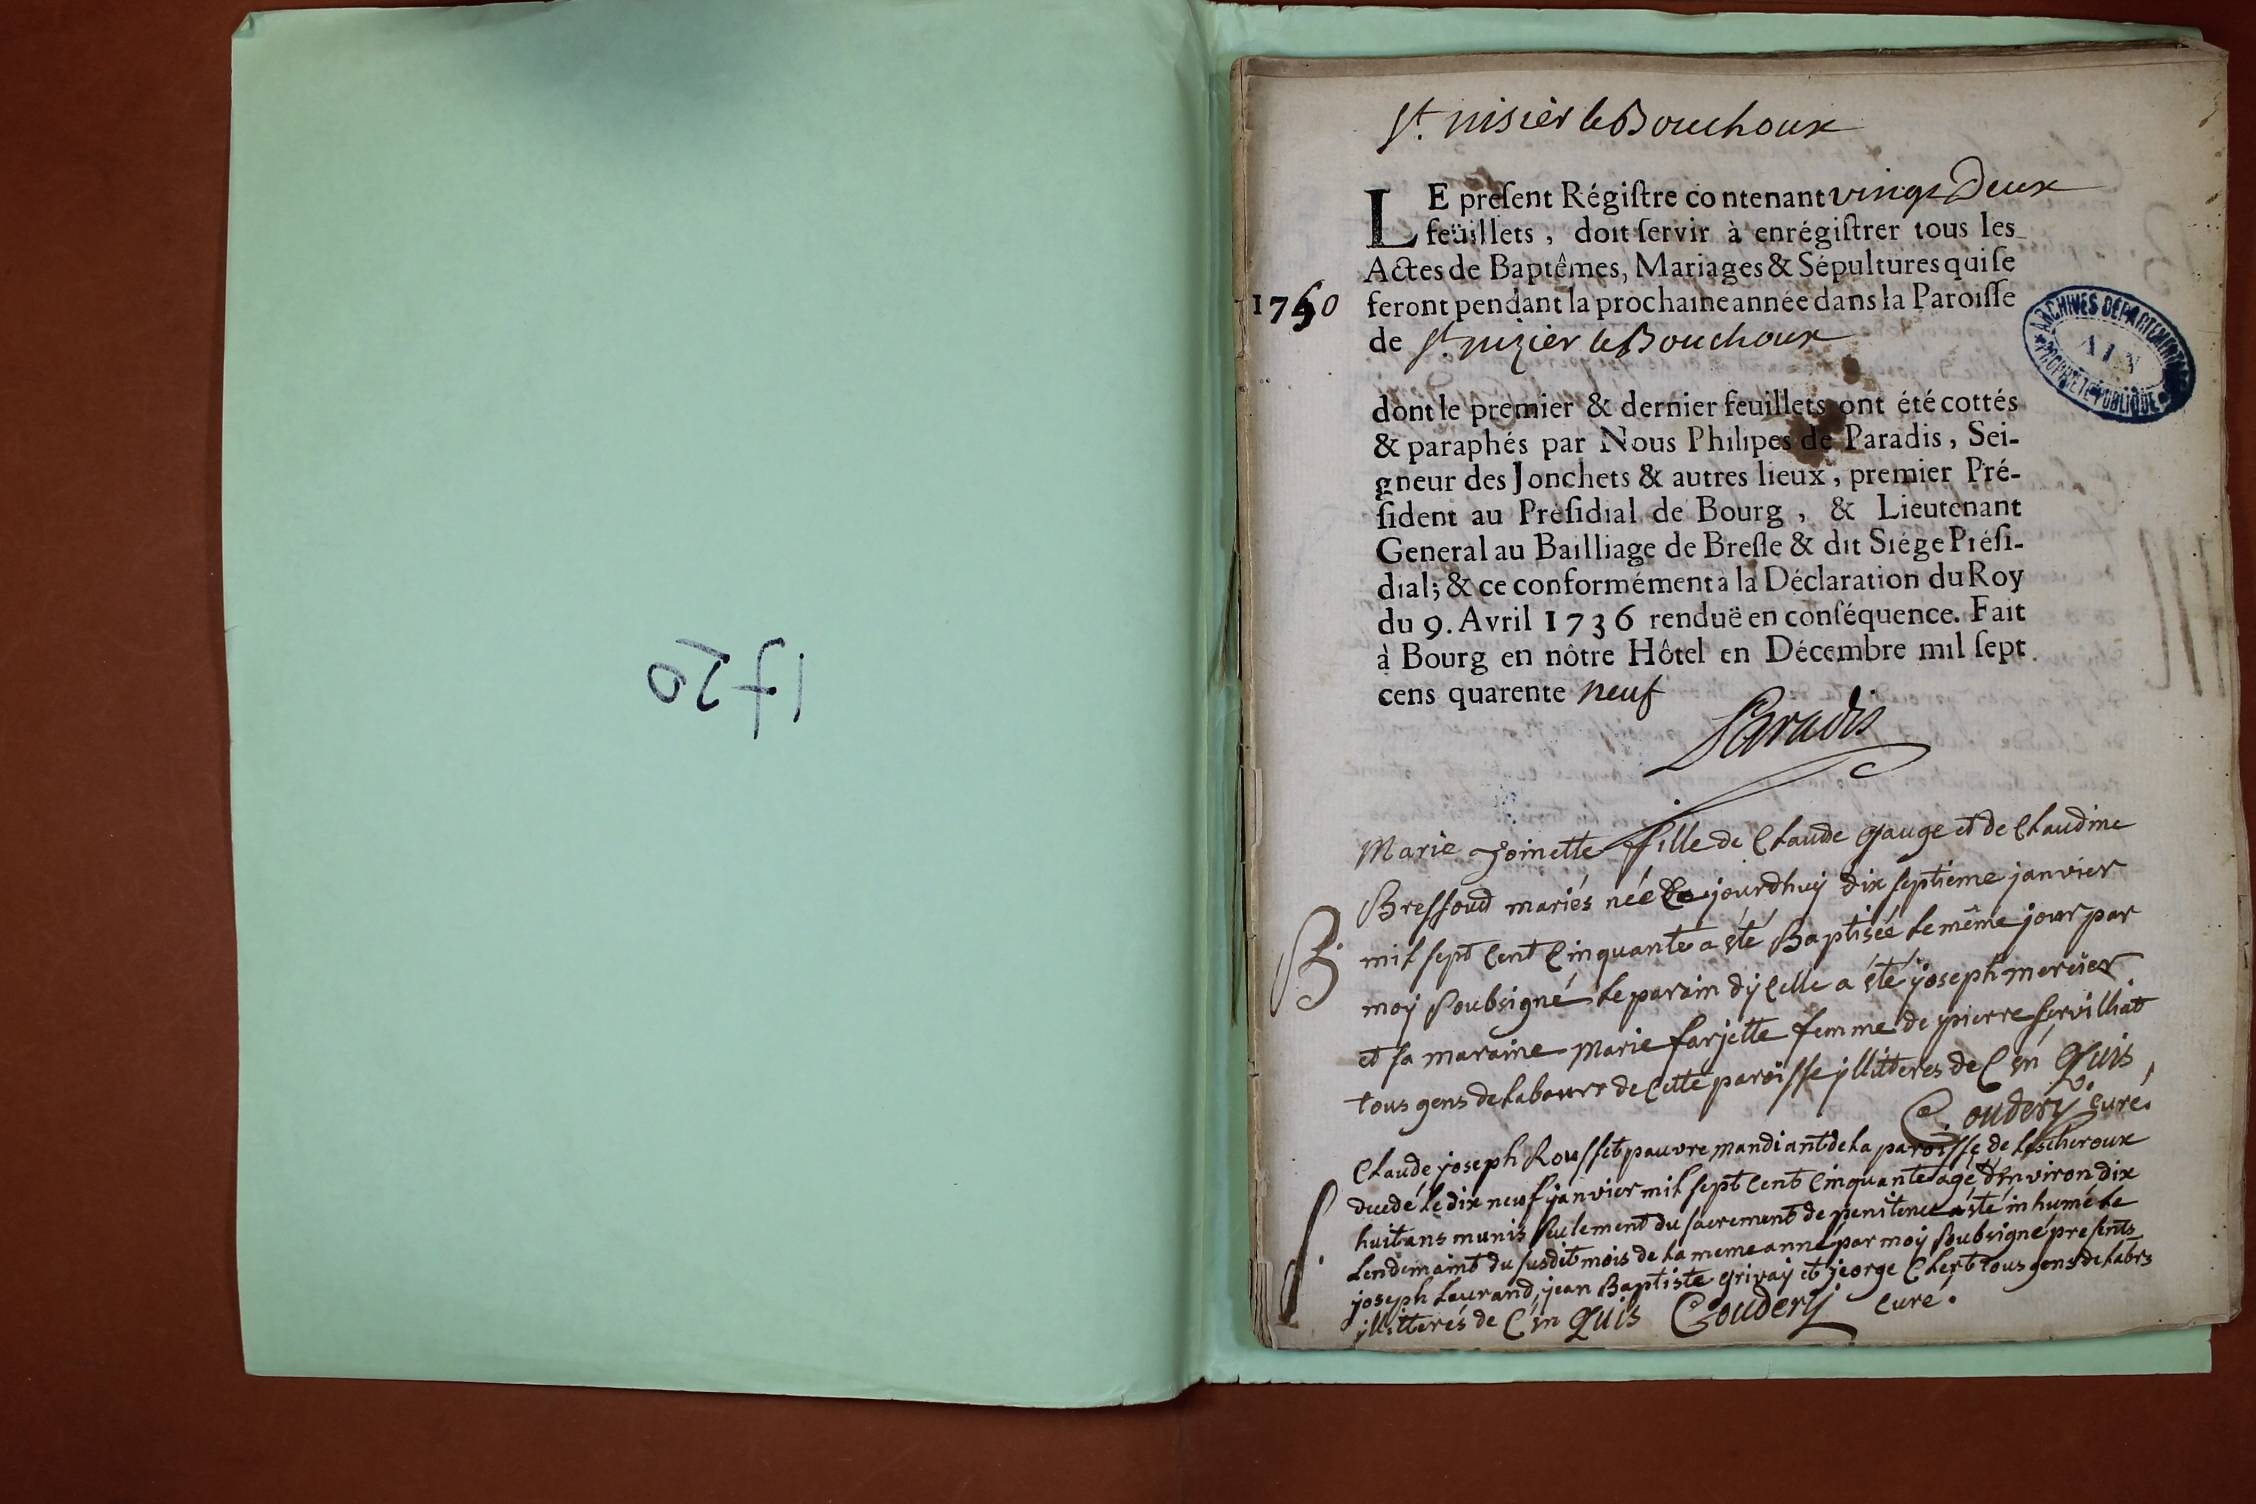 1720
St. nisier le Bouchoux
LE preſent Régiſtre contenant vingt Deux
feüillets, doit ſervir à enrégiſtrer tous les
Actes de Baptêmes, Mariages & Sépultures qui ſe
1750 feront pendant la prochaine année dans la Paroiſſe
de St. nizier le Bouchoux
ARCHIVES DEPARTEMENTALES
AIN
PROPRIÉTÉ PUBLIQUE
dont le premier & dernier feuillets ont été cottés
& paraphés par Nous Philipes de Paradis, Sei-
gneur des Jonchets & autres lieux, premier Pré-
ſident au Préſidial de Bourg, & Lieutenant
General au Bailliage de Breſſe & dit Siége Préſi-
dial; & ce conformément à la Déclaration du Roy
du 9. Avril 1736 renduë en conſéquence. Fait
à Bourg en nôtre Hôtel en Décembre mil ſept
cens quarente neuf
Paradis
Marie Joinette fille de Claude gauge et de Claudine
Bressoud mariés née jourdhuy dix septieme janvier
B. mil sept cent cinquante a été Baptisée le même jour par
moy soubsigné le parain dycelle a été joseph mercier
et sa maraine Marie farjette femme de pierre servilliat
tous gens de labour de cette paroisse yllitteres de ce enquis,
Coudery curé.
Claude joseph Rousset pauvre mandiant de la paroisse de lescheroux
decedé le dix neuf janvier mil sept cent cinquante agé d'environ dix
huit ans munis seulement du sacrement de penitence a été inhumé le
S. lendemaint du susdit mois de la meme anné par moy soubsigné présents
joseph laurand, jean Baptiste grivay et jeorge Clert tous gens de labrs
yllitterés de ce enquis Coudery curé.